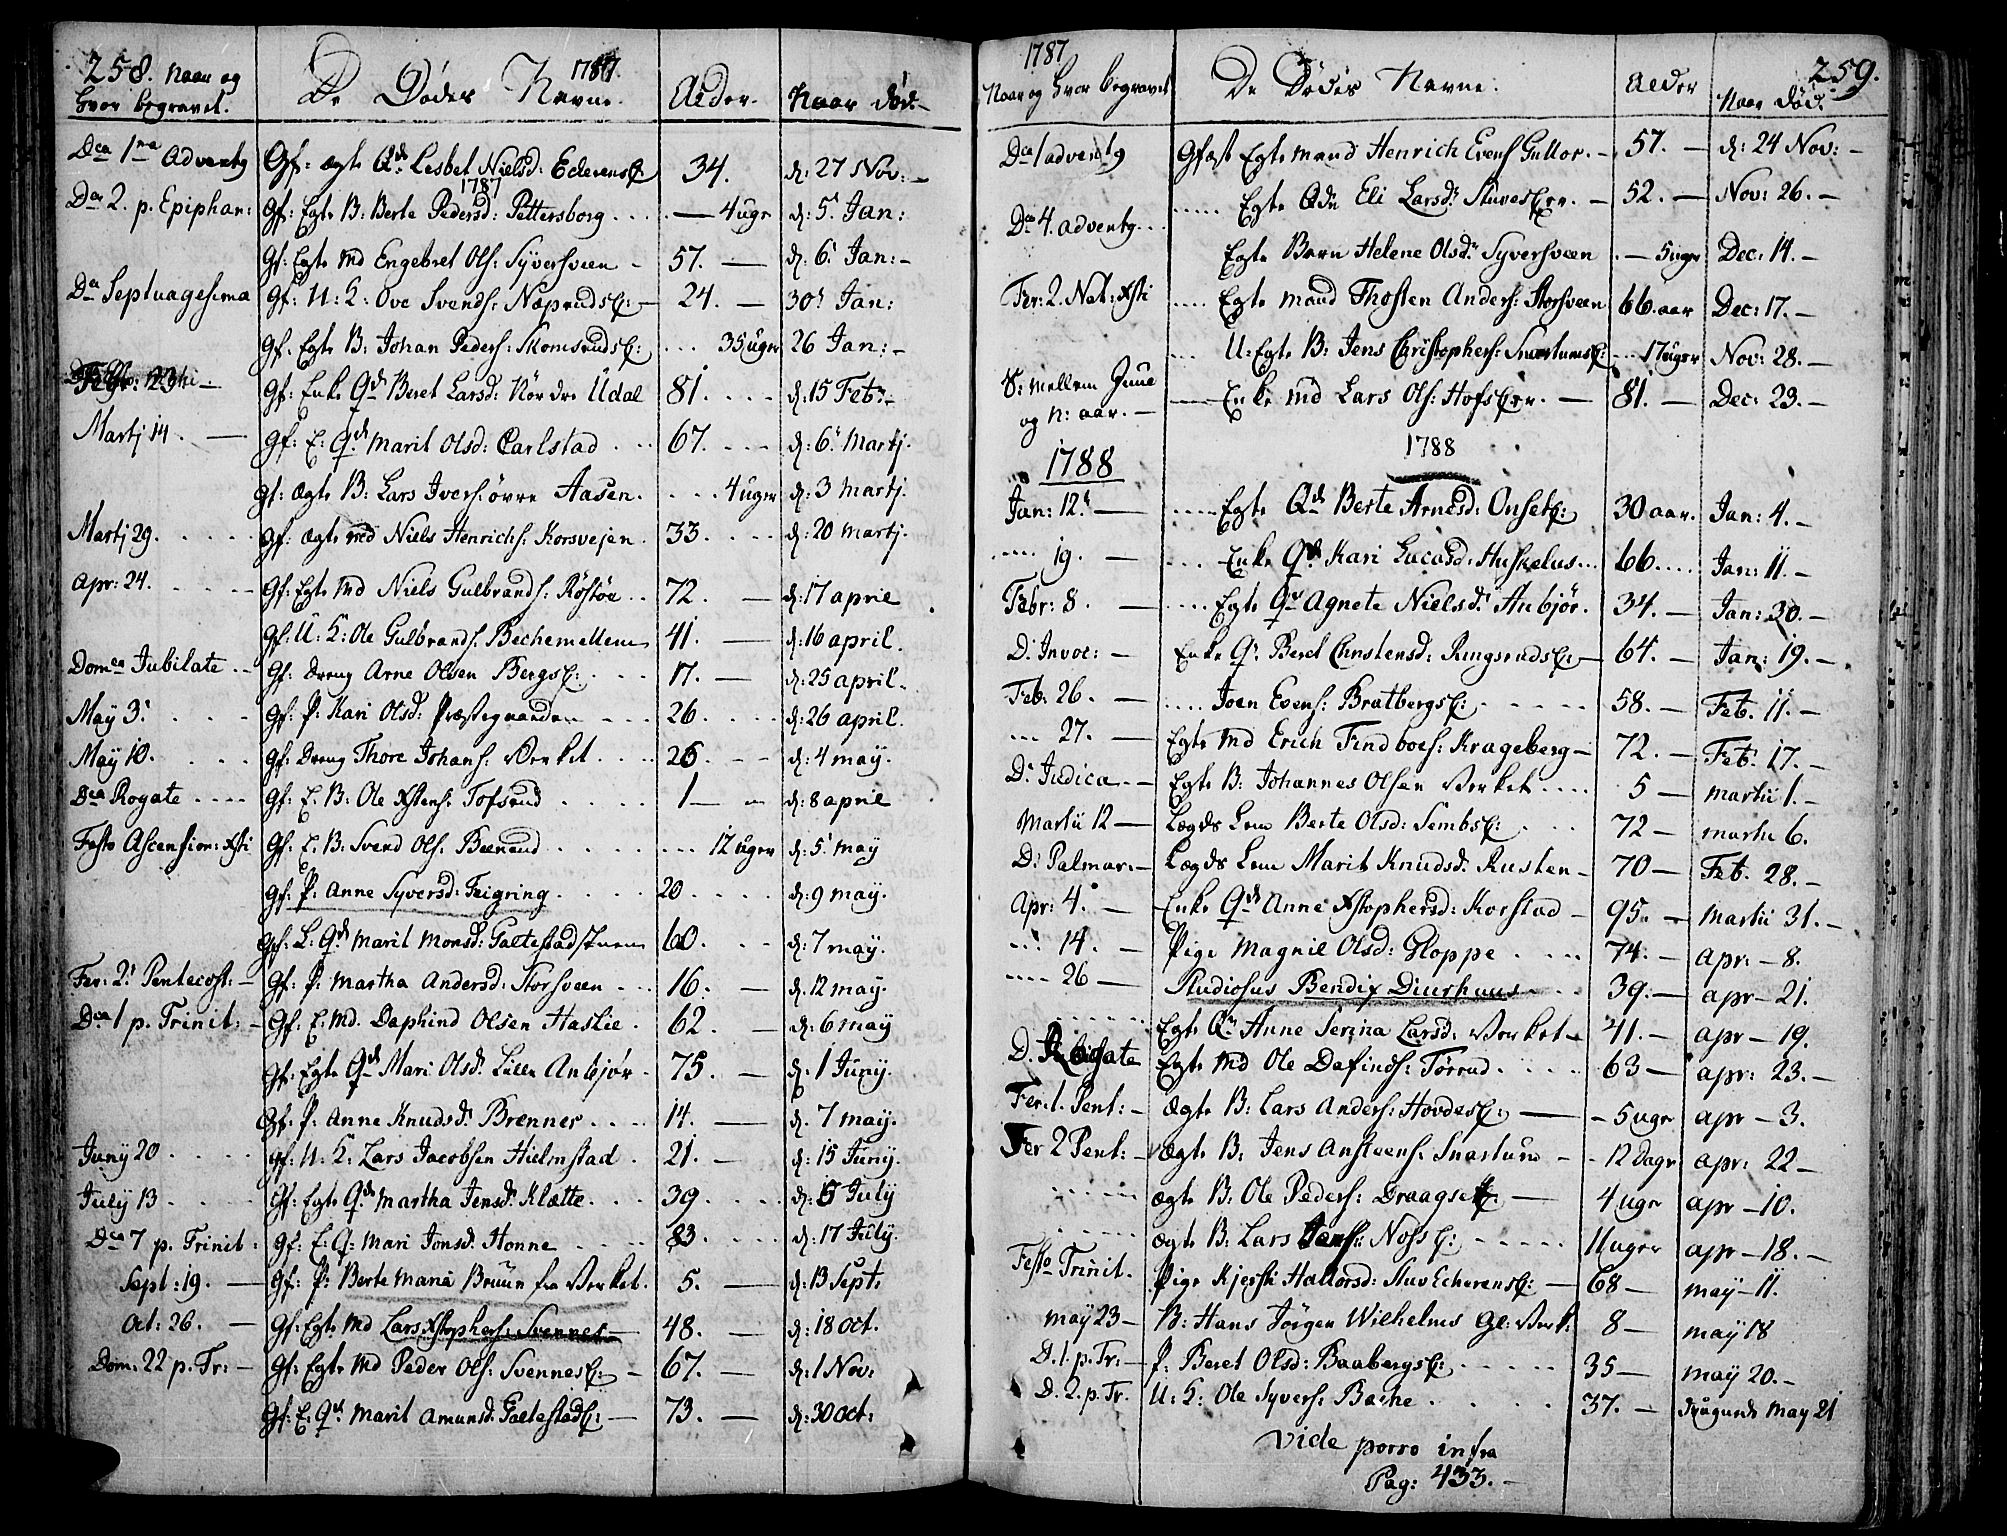 258. Naar og
hvor begravet.
De Dödes Navne. 1787.
Alder.
Naar död
Dca 1ma Adventg Gf: ægte Qd: Lesbet Nielsd: 34. d: 27 Nov:
1787
Dca 2. p. Epiphan: Gf: Egte B: Berte Pedersd: Pettersborg 4 uger d: 5. Jan:
Gf: Egte Md Engebret Ols: Syversveen 57. d: 6. Jan:
Dca Septuagesima Gf: U: K: Ove Svends: 24. 30t Jan:
Gf: Egte B: Johan Peders: 35 uger 26 Jan:
Gf: Enke Qd Beret Larsd: Nördre Udal 81. d: 15 Febr
Martj 14. Gf: E: Qd: Marit Olsd: Carlstad 67. d: 6. Martj.
Gf: ægte B: Lars Ivers: övre Aasen. 4 uger d: 3 Martj.
Martj 29. Gf: ægte md Niels Henrichs: Korsvejen 33. d: 20 Martj.
Apr: 24. Gf: Egte Md Niels Gulbrands: Röstöe 72. d: 17 april
Gf: U: K: Ole Gulbrands: Bechemellem 41. d: 16 april.
Domca Jubilate Gf: Dreng Arne Olsen 17. d: 25 april.
May 3. Gf: P: Kari Olsd: Præstegaarden 26. d: 26 april.
May 10. Gf: Dreng Thore Johans: Verket 26. d: 4 may.
Dca Rogate Gf: E: B: Ole Xstens: Tofsrud 1 d: 8 april
Festo Ascension: Xsti Gf: E: B: Svend Ols: 12 uger d: 5. may
Gf: P: Anne Syversd: Feigring 20 d: 9 may.
Gf: L: Qd: Marit Monsd: 60. d: 7 may.
Fer: 2. Pentecost: Gf: P: Martha Andersd: Storsveen 16. d. 12 may.
Dca 1 p. Trinit: Gf: E: Md. Daphind Olsen Haslie. 62. d: 6 may
Gf: Egte Qd Mari Olsd: Lille Anbjör 75. d: 1 Juny.
Gf: P: Anne Knudsd: Brennes 14. d. 7 may.
Juny 20 Gf: U: K: Lars Jacobsen Hielmstad 21. d: 15 Juny.
July 13 Gf: Egte Qd: Martha Jensd: Klætte 39. d: 5 July
Dca 7 p. Trinit. Gf: E: Q: Mari Jonsd: Honne 83. d: 17 July.
Sept: 19. Gf: P: Berte Maria Bruun fra Verket. 5. d: 13 Sept:
Oct: 26. Gf: Egte Md Lars Xstophers: Svennes 48. d: 18 Oct.
Dom: 22 p. Tr: Gf: Egte Md Peder Ols: 67. d: 1 Nov:
Gf: E: Qd. Marit Amunsd: 73. d: 30 Oct:
1787
Naar og hvor begravet
De Dödes Navne.
Alder
Naar Död.
259.
Dca 1 adventg Gfæst Egte mand Henrich Evens Gullor. 57. d: 24 Nov:
Egte Qde Eli Larsd: 52. Nov: 26.
Dca 4. adventg Egte Barn Helene Olsd: Syversveen 5 uger Dec: 14.
Fer: 2. Nat: Xsti Egte mand Thosten Anders: Storsveen 66. aar Dec: 17.
U: Egte B: Jens Christophers: 17 uger Nov: 28.
S: mellem Juul
og n: aar. Enke md Lars Ols: 81. Dec: 23.
1788 1788
Jan: 12. Egte Qd Berte Arnesd: 30 aar. Jan: 4.
19. Enke Qd Kari Lucasd: Huskelus 66 Jan: 11.
Febr: 8. Egte Qd Agnete Nielsd: Anbjör. 34. Jan: 30.
D: Invoc: Enke Qd Beret Christensd: 64. Jan: 19.
Feb: 26. Joen Evens: 58. Feb. 11.
27. Egte Md Erich Findboes: Krageberg 72. Feb. 17.
D: Judica Egte B: Johannes Olsen Verket 5 martii 1.
Martii 12 Lægds Lem Berte Olsd: 72 martii 6.
D: Palmar: Lægds Lem Marit Knudsd: Rusten 70 Feb. 28.
Apr: 4. Enke Qd Anne Xstophersd: Korstad 95. Martii 31.
14. Pige Magnil Olsd: Gloppe 74. apr: 8.
26 Studiosus Bendix Diurhuus 39. apr 21.
Egte Qd Anne Serina Larsd: Verket 41. apr 19.
D. Rogate Egte Md Ole Dafinds: Törrud 63 apr: 23.
Fer. 1. Pent: Ægte B: Lars Anders: 5 uger apr 3.
Fer 2 Pent: Ægte B: Jens Ansteens: Snartum 12 Dage apr: 22
ægte B: Ole Peders: 4 uger apr 10.
ægte B: Lars 11 uger apr 18.
Festo Trinit. Pige Kjersti Halvorsd: 68 may 11.
may 23 B: Hans Jörgen Wilhelms Gl: Verk: 8 may 18
D. 1. p. Tr: P: Beret Olsd: 35 may 20.
D. 2. p. Tr. U: K: Ole Syvers: Bache 37. may 21
Vide porro infra
Pag: 433.